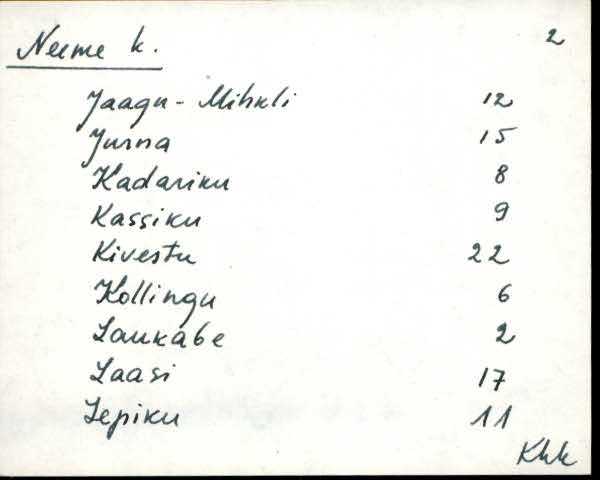 Neeme k. 2
Jaagu-Mihkli 12
Jurna 15
Kadariku 8
Kassiku 9
Kivestu 22
Kollingu 6
Laukabe 2
Laasi 17
Lepiku 11
Khk